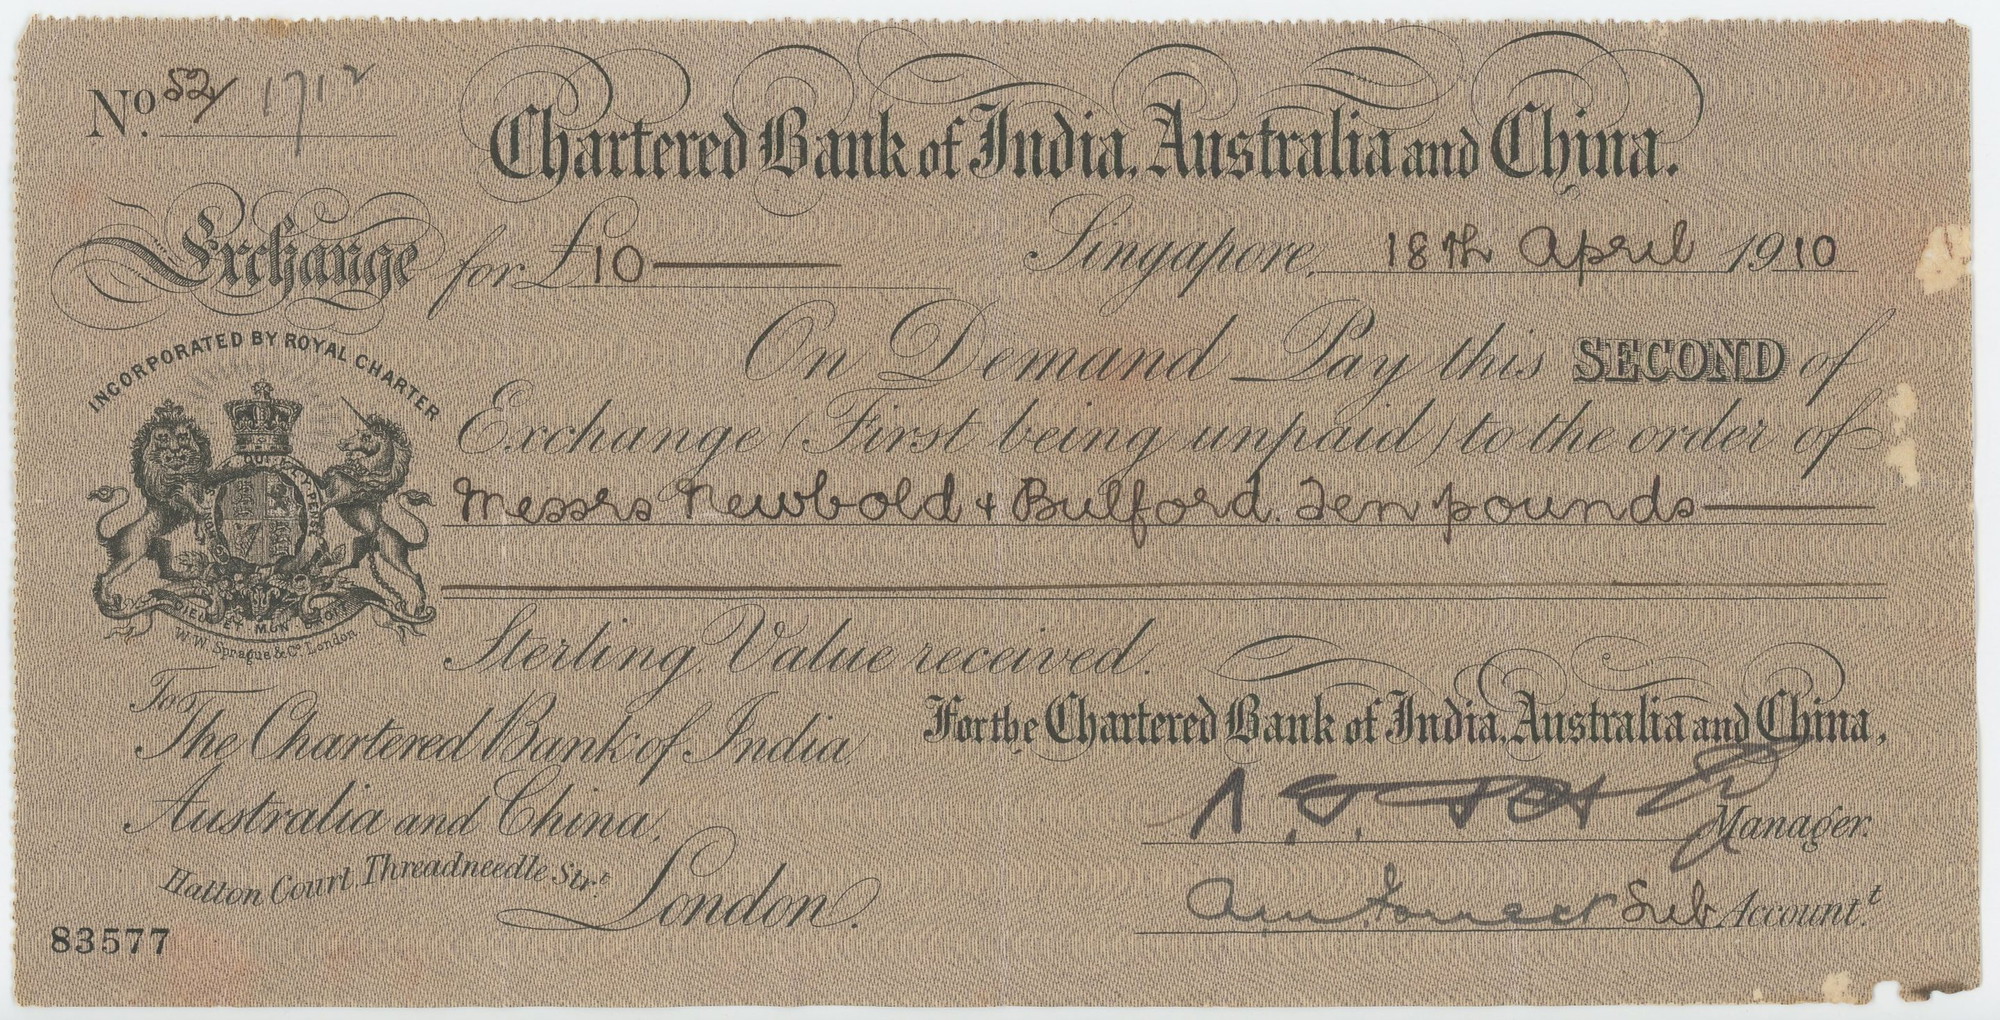 No. 52/ 1712
Chartered Bank of India, Australia and China.
Exchange for £10 Singapore, 18th April 1910
On Demand Pay this SECOND of
Exchange (First being unpaid) to the order of
Messrs Newbold & Bulford. Ten pounds
Sterling, Value received.
INCORPORATED BY ROYAL CHARTER
DIEU ET MON DROIT
W.W. Sprague & Co. London
To
The Chartered Bank of India,
Australia and China,
Hatton Court, Threadneedle Strt.
London.
For the Chartered Bank of India, Australia and China,
Manager.
Sub Account.t
83577